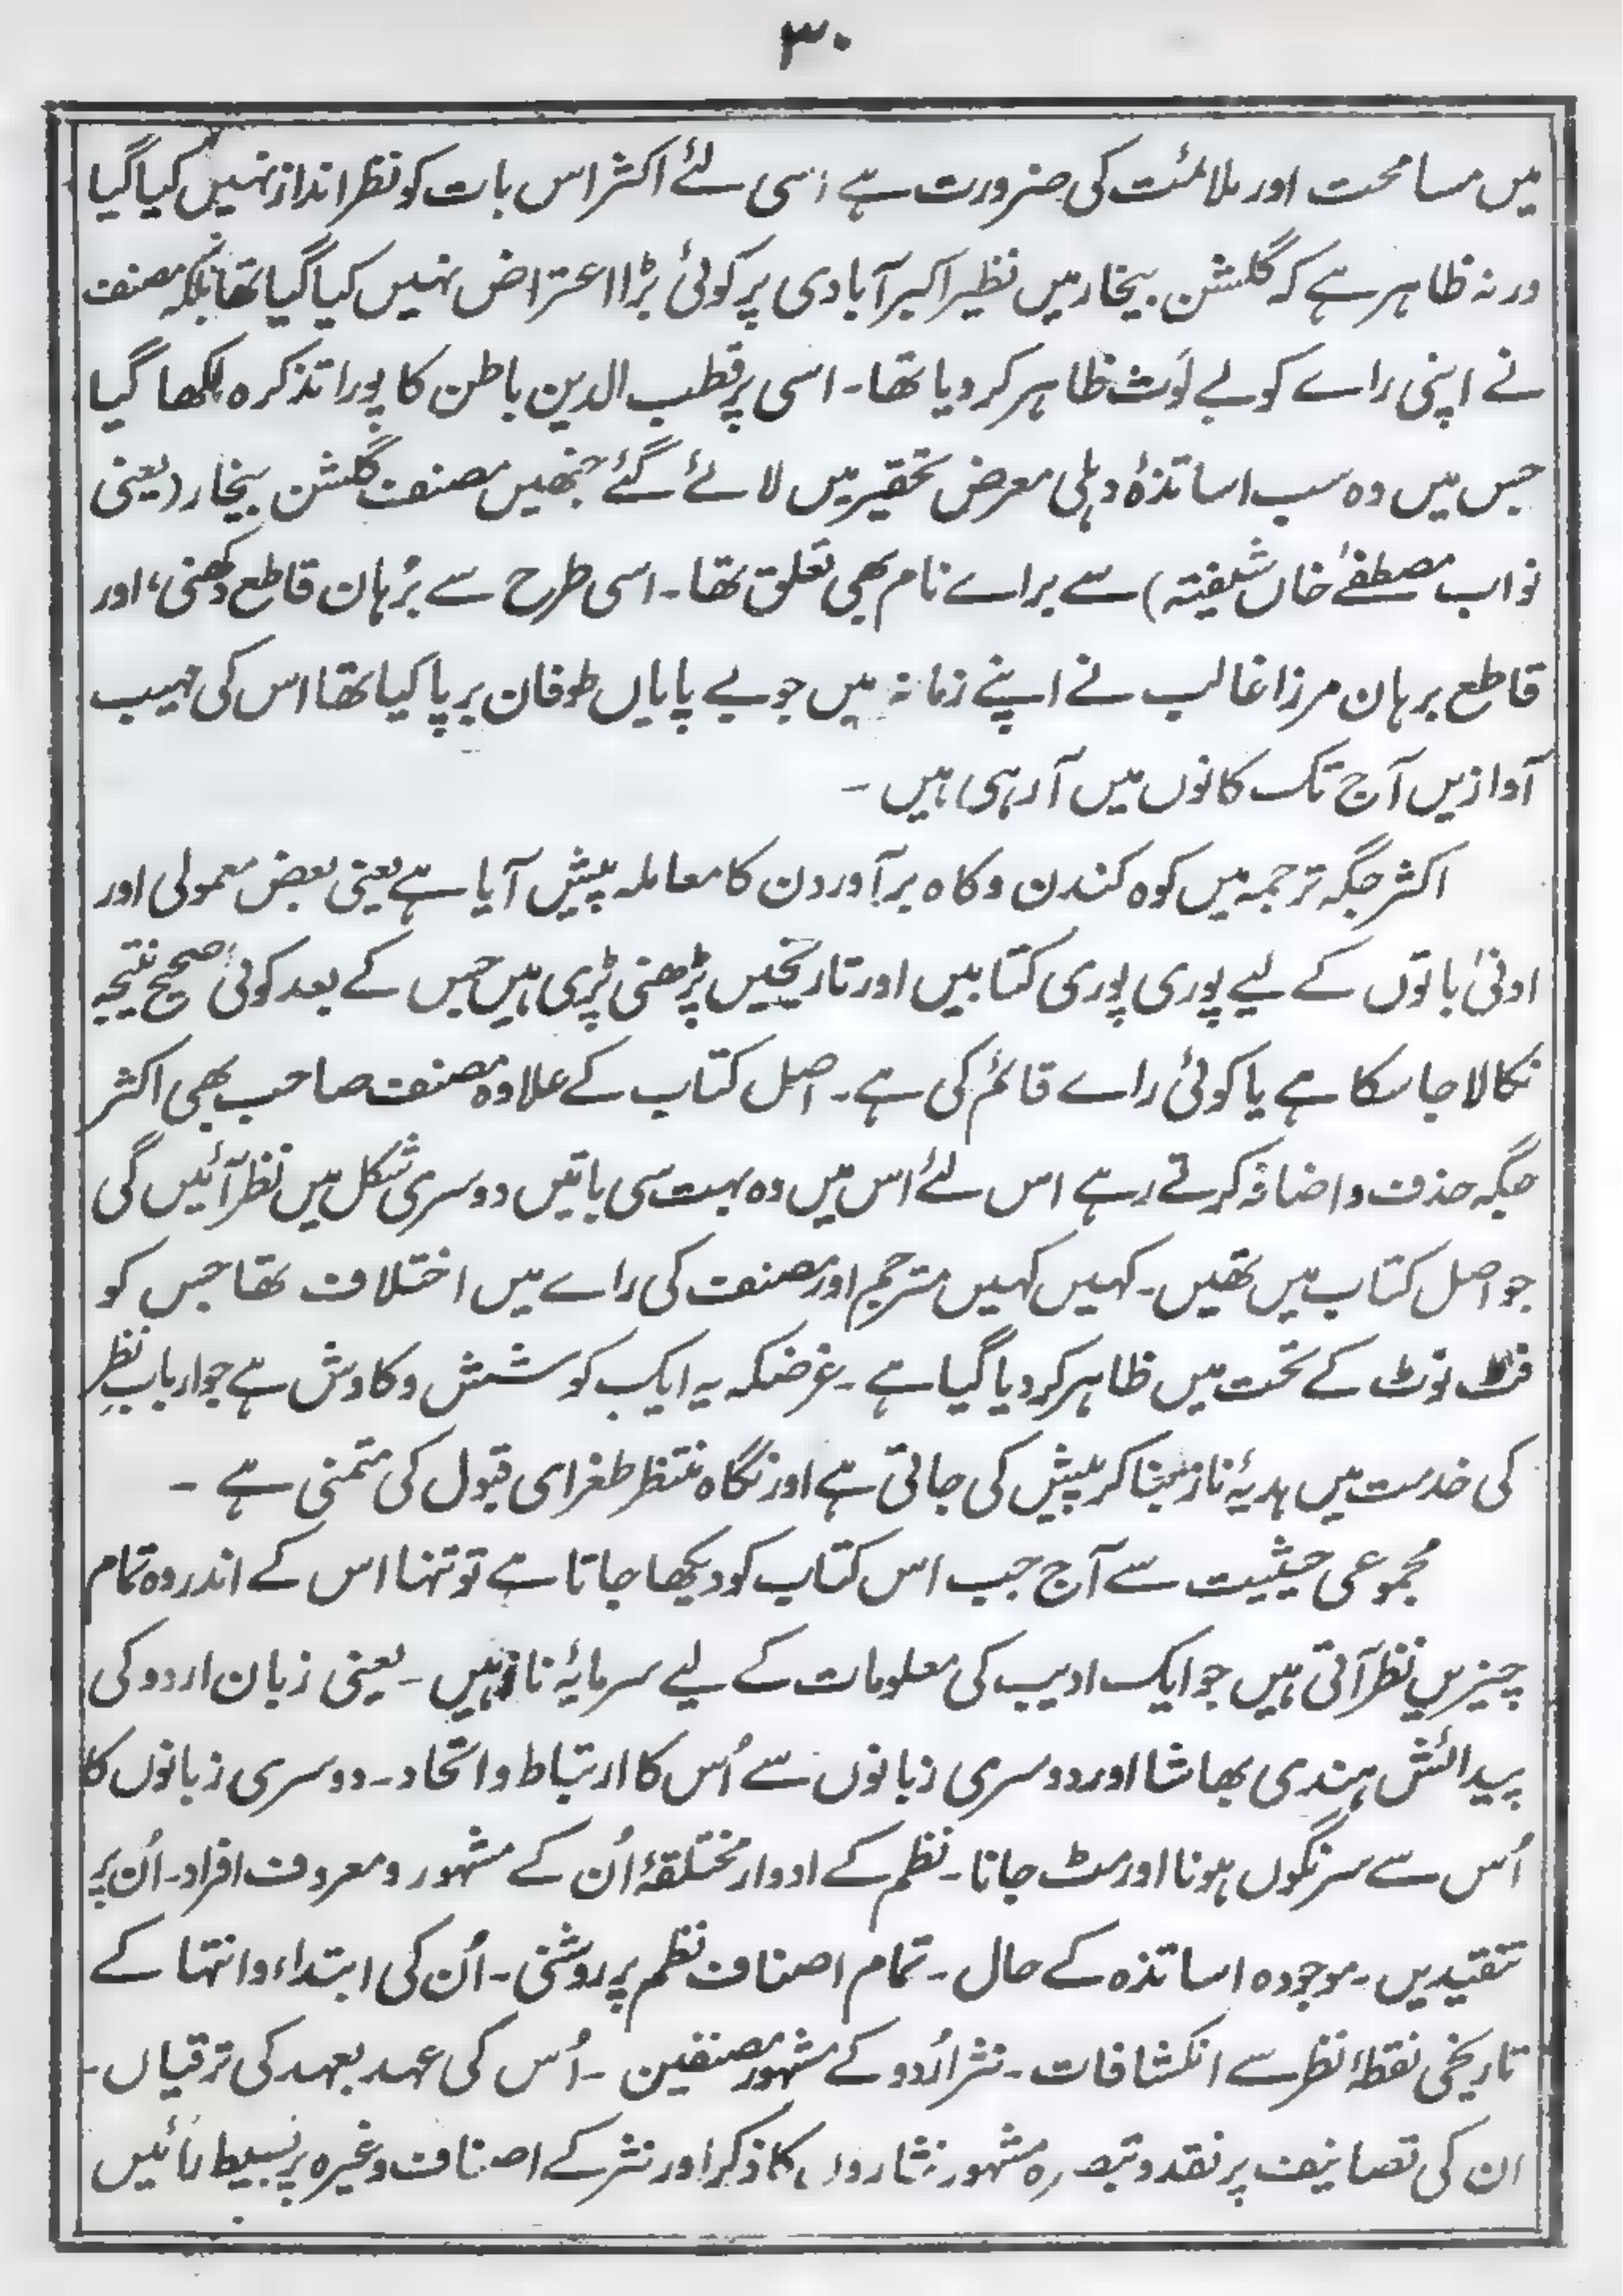 ۳۰
میں مسامحت اور ملائمت کی ضرورت ہے اسی لئے اکثر اس بات کو نظر انداز نہیں کیا گیا
ورنہ ظاہر ہے کہ گلشن بیخار میں نظیر اکبر آبادی پر کوئی بڑا اعتراض نہیں کیا گیا تھا بلکہ مصنف
نے اپنی رائے کو بے لَوث ظاہر کر دیا تھا۔ اسی پر قطب الدین باطن کا پورا تذکرہ لکھا گیا
جس میں وہ سب اساتذۂ دہلی معرض تحقیر میں لائے گئے جنھیں مصنف گلشن بیخار (یعنی
نواب مصطفےٰ خاں شیفتہ) سے براے نام بھی تعلق تھا۔ اسی طرح سے بُرہان قاطع دکھنی، اور
قاطع برہان مرزا غالب نے اپنے زمانہ میں جو بے پایاں طوفان برپا کیا تھا اس کی مہیب
آوازیں آج تک کانوں میں آ رہی ہیں ۔
اکثر جگہ ترجمہ میں کوہ کندن و کاہ برآوردن کا معاملہ پیش آیا ہے یعنی بعض معمولی اور
ادنیٰ باتوں کے لیے پوری پوری کتابیں اور تاریخیں پڑھنی پڑی ہیں جس کے بعد کوئی صحیح نتیجہ
نکالا جا سکا ہے یا کوئی راے قائم کی ہے۔ اصل کتاب کے علاوہ مصنف صاحب بھی اکثر
جگہ حذف و اضافہ کرتے رہے اس لئے اس میں وہ بہت سی باتیں دوسری شکل میں نظر آئیں گی
جو اصل کتاب میں تھیں۔ کہیں کہیں مترجم اور مصنف کی راے میں اختلاف تھا جس کو
فٹ نوٹ کے تحت میں ظاہر کر دیا گیا ہے ۔ غرضکہ یہ ایک کوشش و کاوش ہے جو اربابِ نظر
کی خدمت میں ہدیۂ ناز بنا کر پیش کی جاتی ہے اور نگاہ منتظر طغرای قبول کی متمنی ہے ۔
مجموعی حیثیت سے آج جب اس کتاب کو دیکھا جاتا ہے تو تنہا اس کے اندر وہ تمام
چیزیں نظر آتی ہیں جو ایک ادیب کی معلومات کے لیے سرمایۂ ناز ہیں ۔ یعنی زبان اردو کی
پیدائش ہندی بھاشا اور دوسری زبانوں سے اُس کا ارتباط و اتحاد۔ دوسری زبانوں کا
اُس سے سرنگوں ہونا اور مٹ جانا۔ نظم کے ادوار مختلفۂ اُن کے مشہور و معروف افراد۔ اُن پر
تنقیدیں۔ موجودہ اساتذہ کے حال ۔ تمام اصناف نظم پر روشنی ۔ اُن کی ابتداء و انتہا کے
تاریخی نقطۂ نظر سے انکشافات ۔ نثر اُردو کے مشہور مصنفین ۔ اُس کی عہد بعہد کی ترقیاں ۔
ان کی تصانیف پر نقد و تبصرہ مشہور نثاروں کا ذکر اور نثر کے اصناف وغیرہ پر بسیط